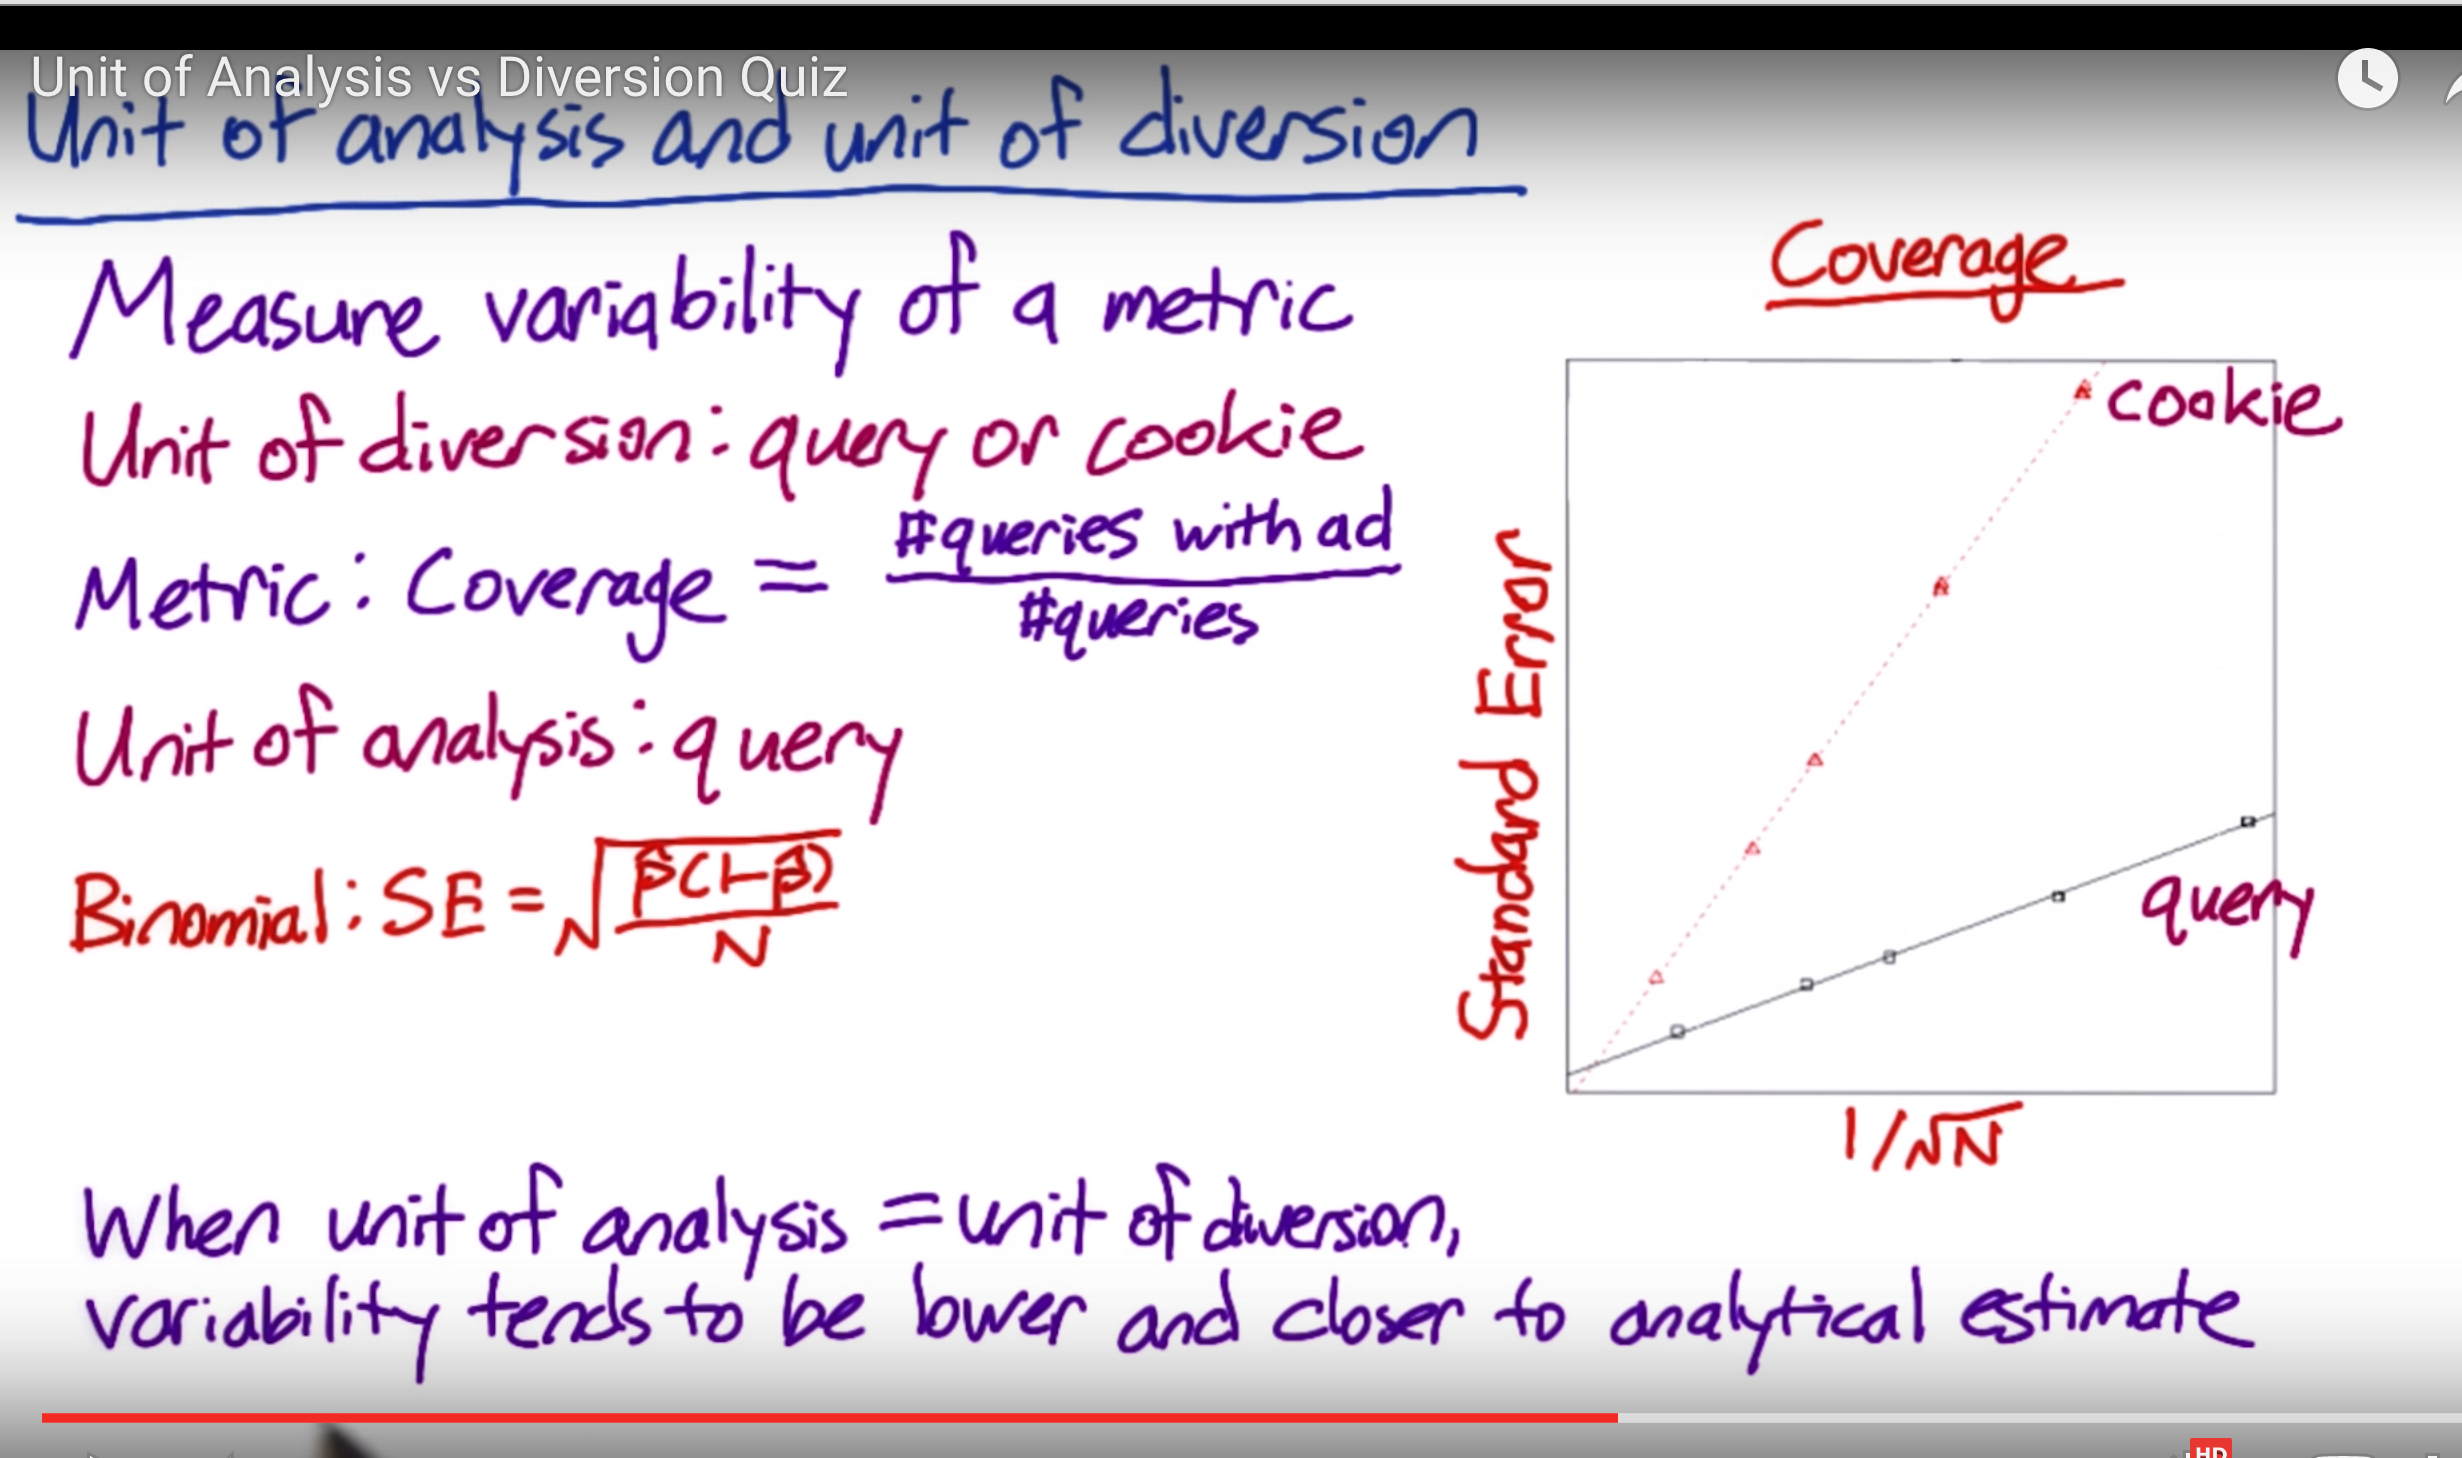 Unit of Analysis vs Diversion Quiz
Unit of analysis and unit of diversion
Measure variability of a metric
Unit of diversion: query or cookie
Metric: Coverage = #queries with ad
#queries
Unit of analysis: query
Binomial: SE = √p̂(1-p̂)
N
Coverage
cookie
query
Standard Error
1/√N
When unit of analysis = unit of diversion,
variability tends to be lower and closer to analytical estimate
HD